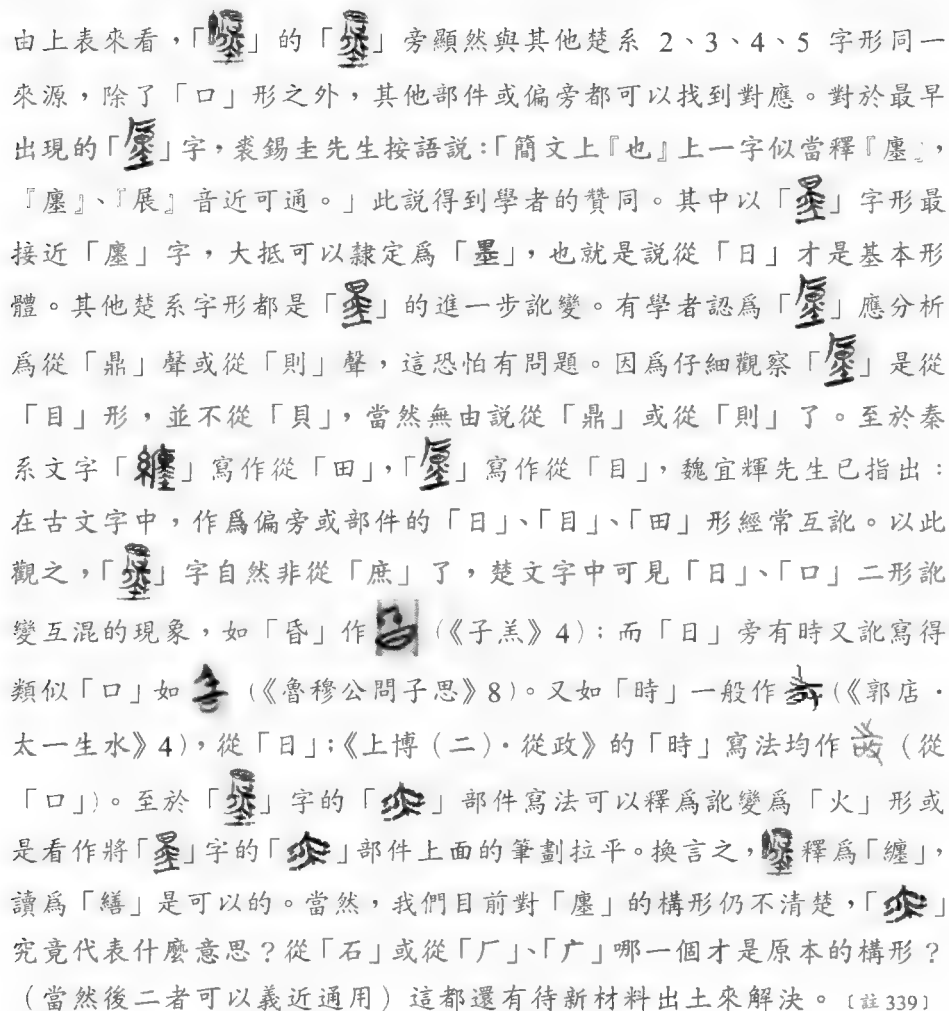 由上表來看，「」的「」旁顯然與其他楚系 2、3、4、5 字形同一
來源，除了「口」形之外，其他部件或偏旁都可以找到對應。對於最早
出現的「」字，裘錫圭先生按語說：「簡文上『也』上一字似當釋『廛』，
『廛』、『展』音近可通。」此說得到學者的贊同。其中以「」字形最
接近「廛」字，大抵可以隸定爲「」，也就是說從「日」才是基本形
體。其他楚系字形都是「」的進一步訛變。有學者認爲「」應分析
爲從「鼎」聲或從「則」聲，這恐怕有問題。因爲仔細觀察「」是從
「目」形，並不從「貝」，當然無由說從「鼎」或從「則」了。至於秦
系文字「」寫作從「田」，「」寫作從「目」，魏宜輝先生已指出：
在古文字中，作爲偏旁或部件的「日」、「目」、「田」形經常互訛。以此
觀之，「」字自然非從「庶」了，楚文字中可見「日」、「口」二形訛
變互混的現象，如「昏」作（《子羔》4）；而「日」旁有時又訛寫得
類似「口」如（《魯穆公問子思》8）。又如「時」一般作（《郭店·
太一生水》4），從「日」；《上博（二）·從政》的「時」寫法均作（從
「口」）。至於「」字的「」部件寫法可以釋爲訛變爲「火」形或
是看作將「」字的「」部件上面的筆劃拉平。換言之，釋爲「纏」，
讀爲「繕」是可以的。當然，我們目前對「廛」的構形仍不清楚，「」
究竟代表什麼意思？從「石」或從「厂」、「广」哪一個才是原本的構形？
（當然後二者可以義近通用）這都還有待新材料出土來解決。〔註339〕